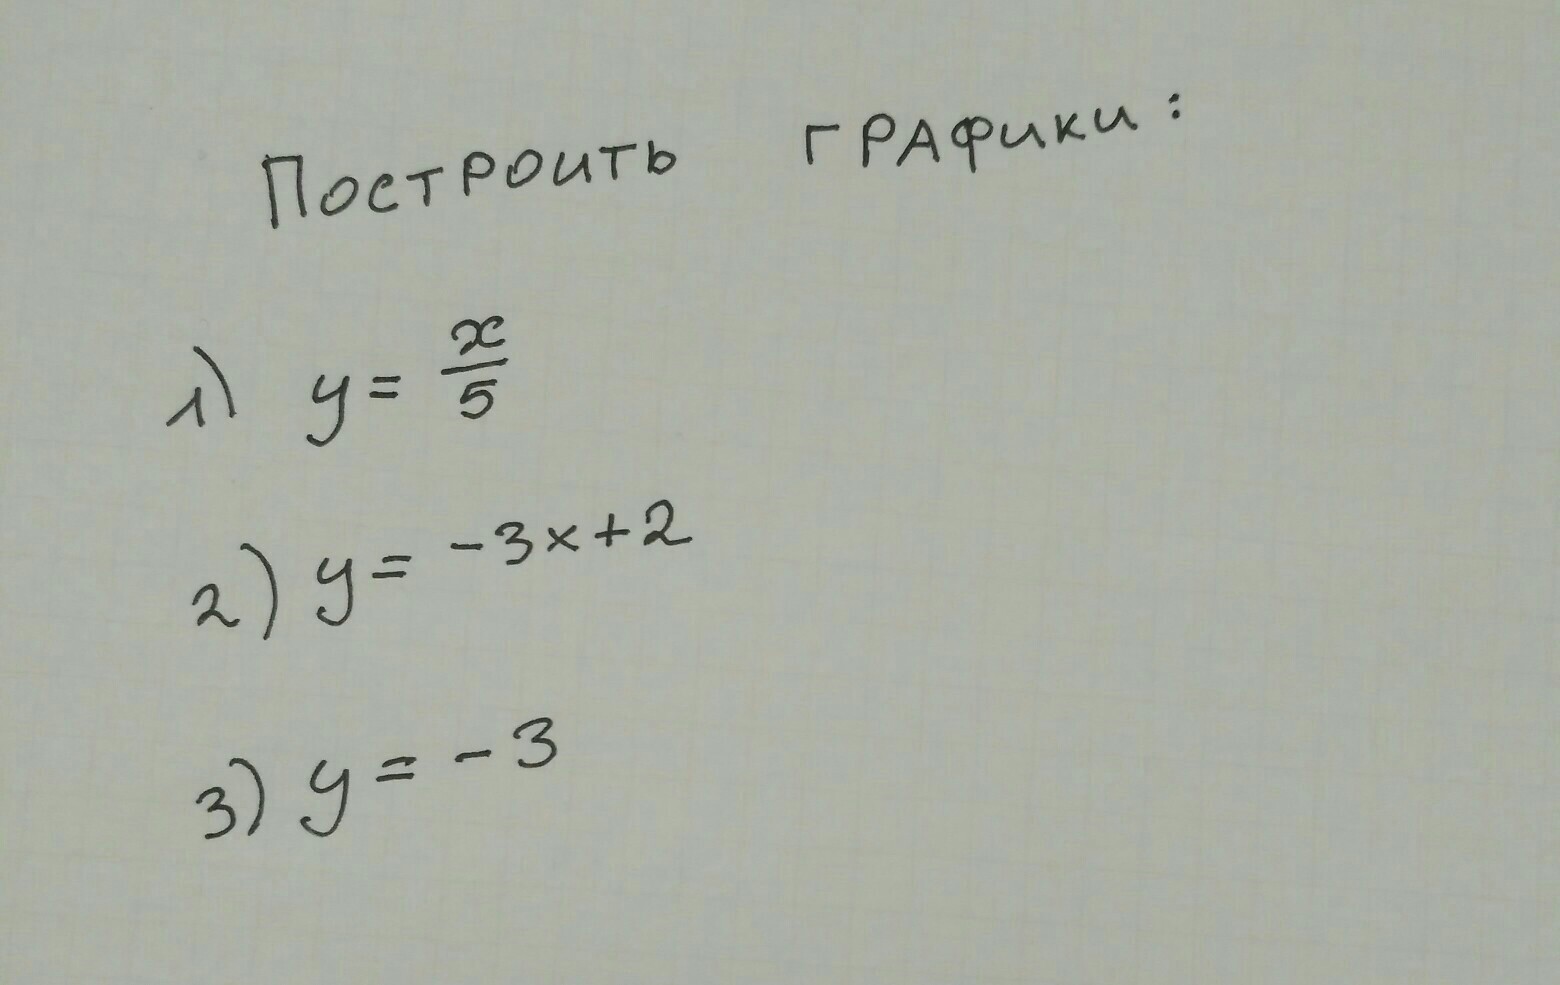 Построить графики:
1) y = x/5
2) y = -3x+2
3) y = -3